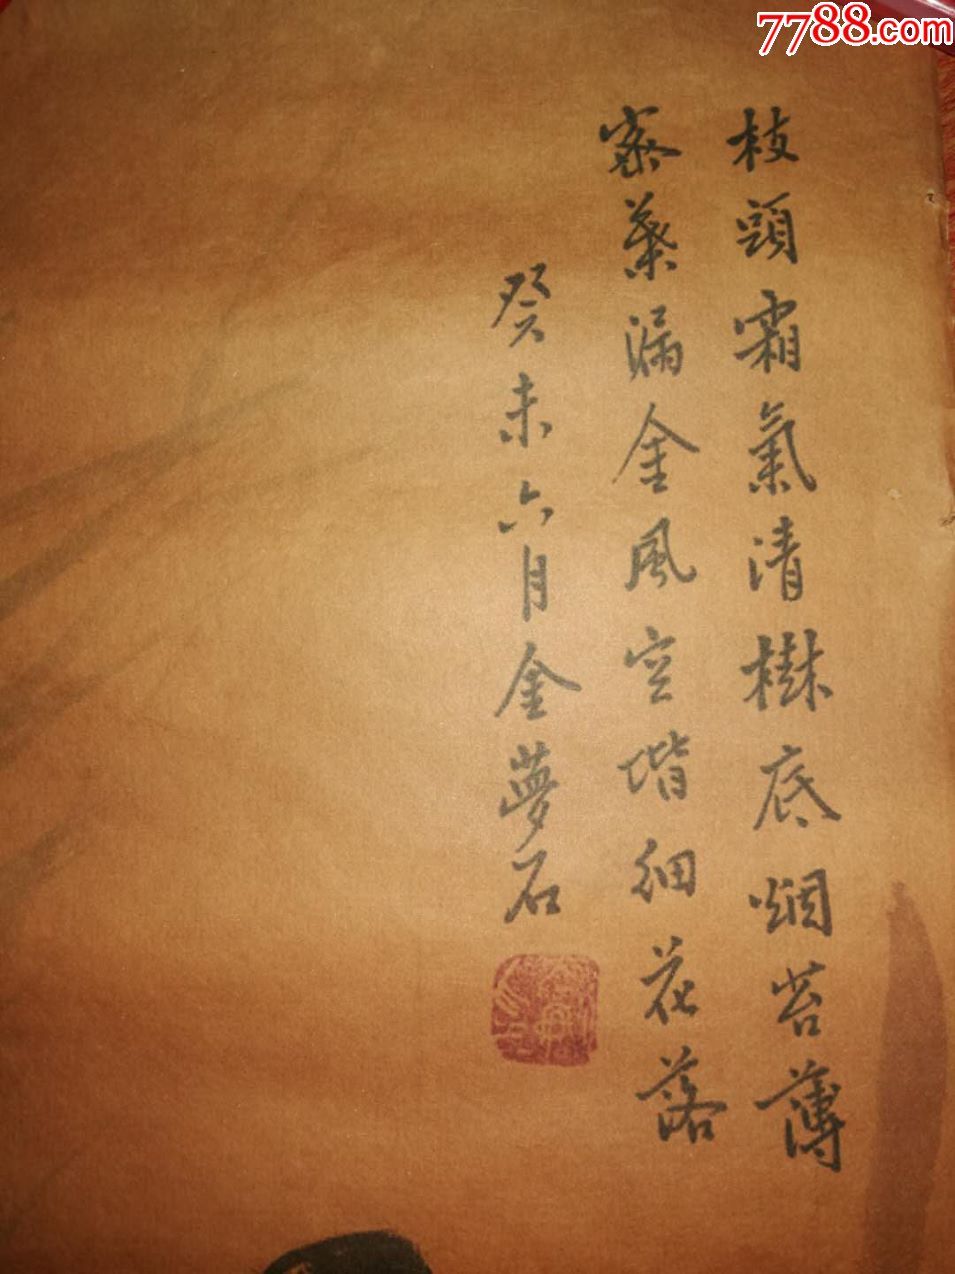 7788.com
枝頭霜氣清樹底烟苔薄
密葉漏金風空堦細花落
癸未六月金夢石